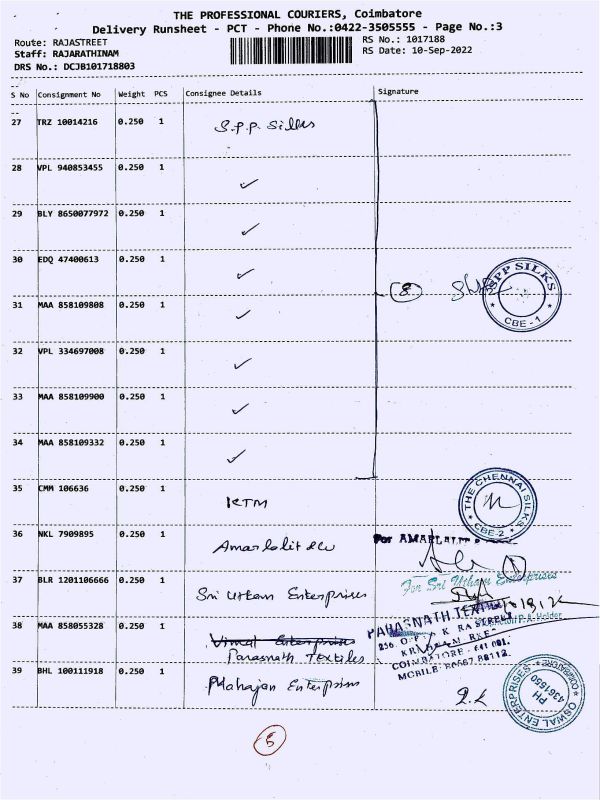 THE PROFESSIONAL COURIERS, Coimbatore
Delivery Runsheet - PCT - Phone No.:0422-3505555 - Page No.:3
Route: RAJASTREET
RS No.: 1017188
Staff: RAJARATHINAM
RS Date: 10-Sep-2022
DRS No.: DCJB101718803
S No Consignment No Weight PCS Consignee Details Signature
27 TRZ 10014216 0.250 1 S.P.P. Silks
28 VPL 940853455 0.250 1 ✓
29 BLY 8650077972 0.250 1 ✓
30 EDQ 47400613 0.250 1 ✓
8
SPP SILKS
CBE - 1
31 MAA 858109808 0.250 1 ✓
32 VPL 334697008 0.250 1 ✓
33 MAA 858109900 0.250 1 ✓
34 MAA 858109332 0.250 1 ✓
35 CMM 106636 0.250 1 KTM
THE CHENNAI SILKS
CBE-2
36 NKL 7909895 0.250 1 Amarlalit
For AMARLALIT
37 BLR 1201106666 0.250 1 Sri Utham Enterprises
For Sri Utham Enterprises
P.A. Holder
38 MAA 858055328 0.250 1 Vimal Enterprises
Parasnath Textiles
PARASNATH TEXTILE
COIMBATORE - 641 001.
39 BHL 100111918 0.250 1 Mahajan Enterprises
OSWAL ENTERPRISES
COIMBATORE
PH
4361550
5